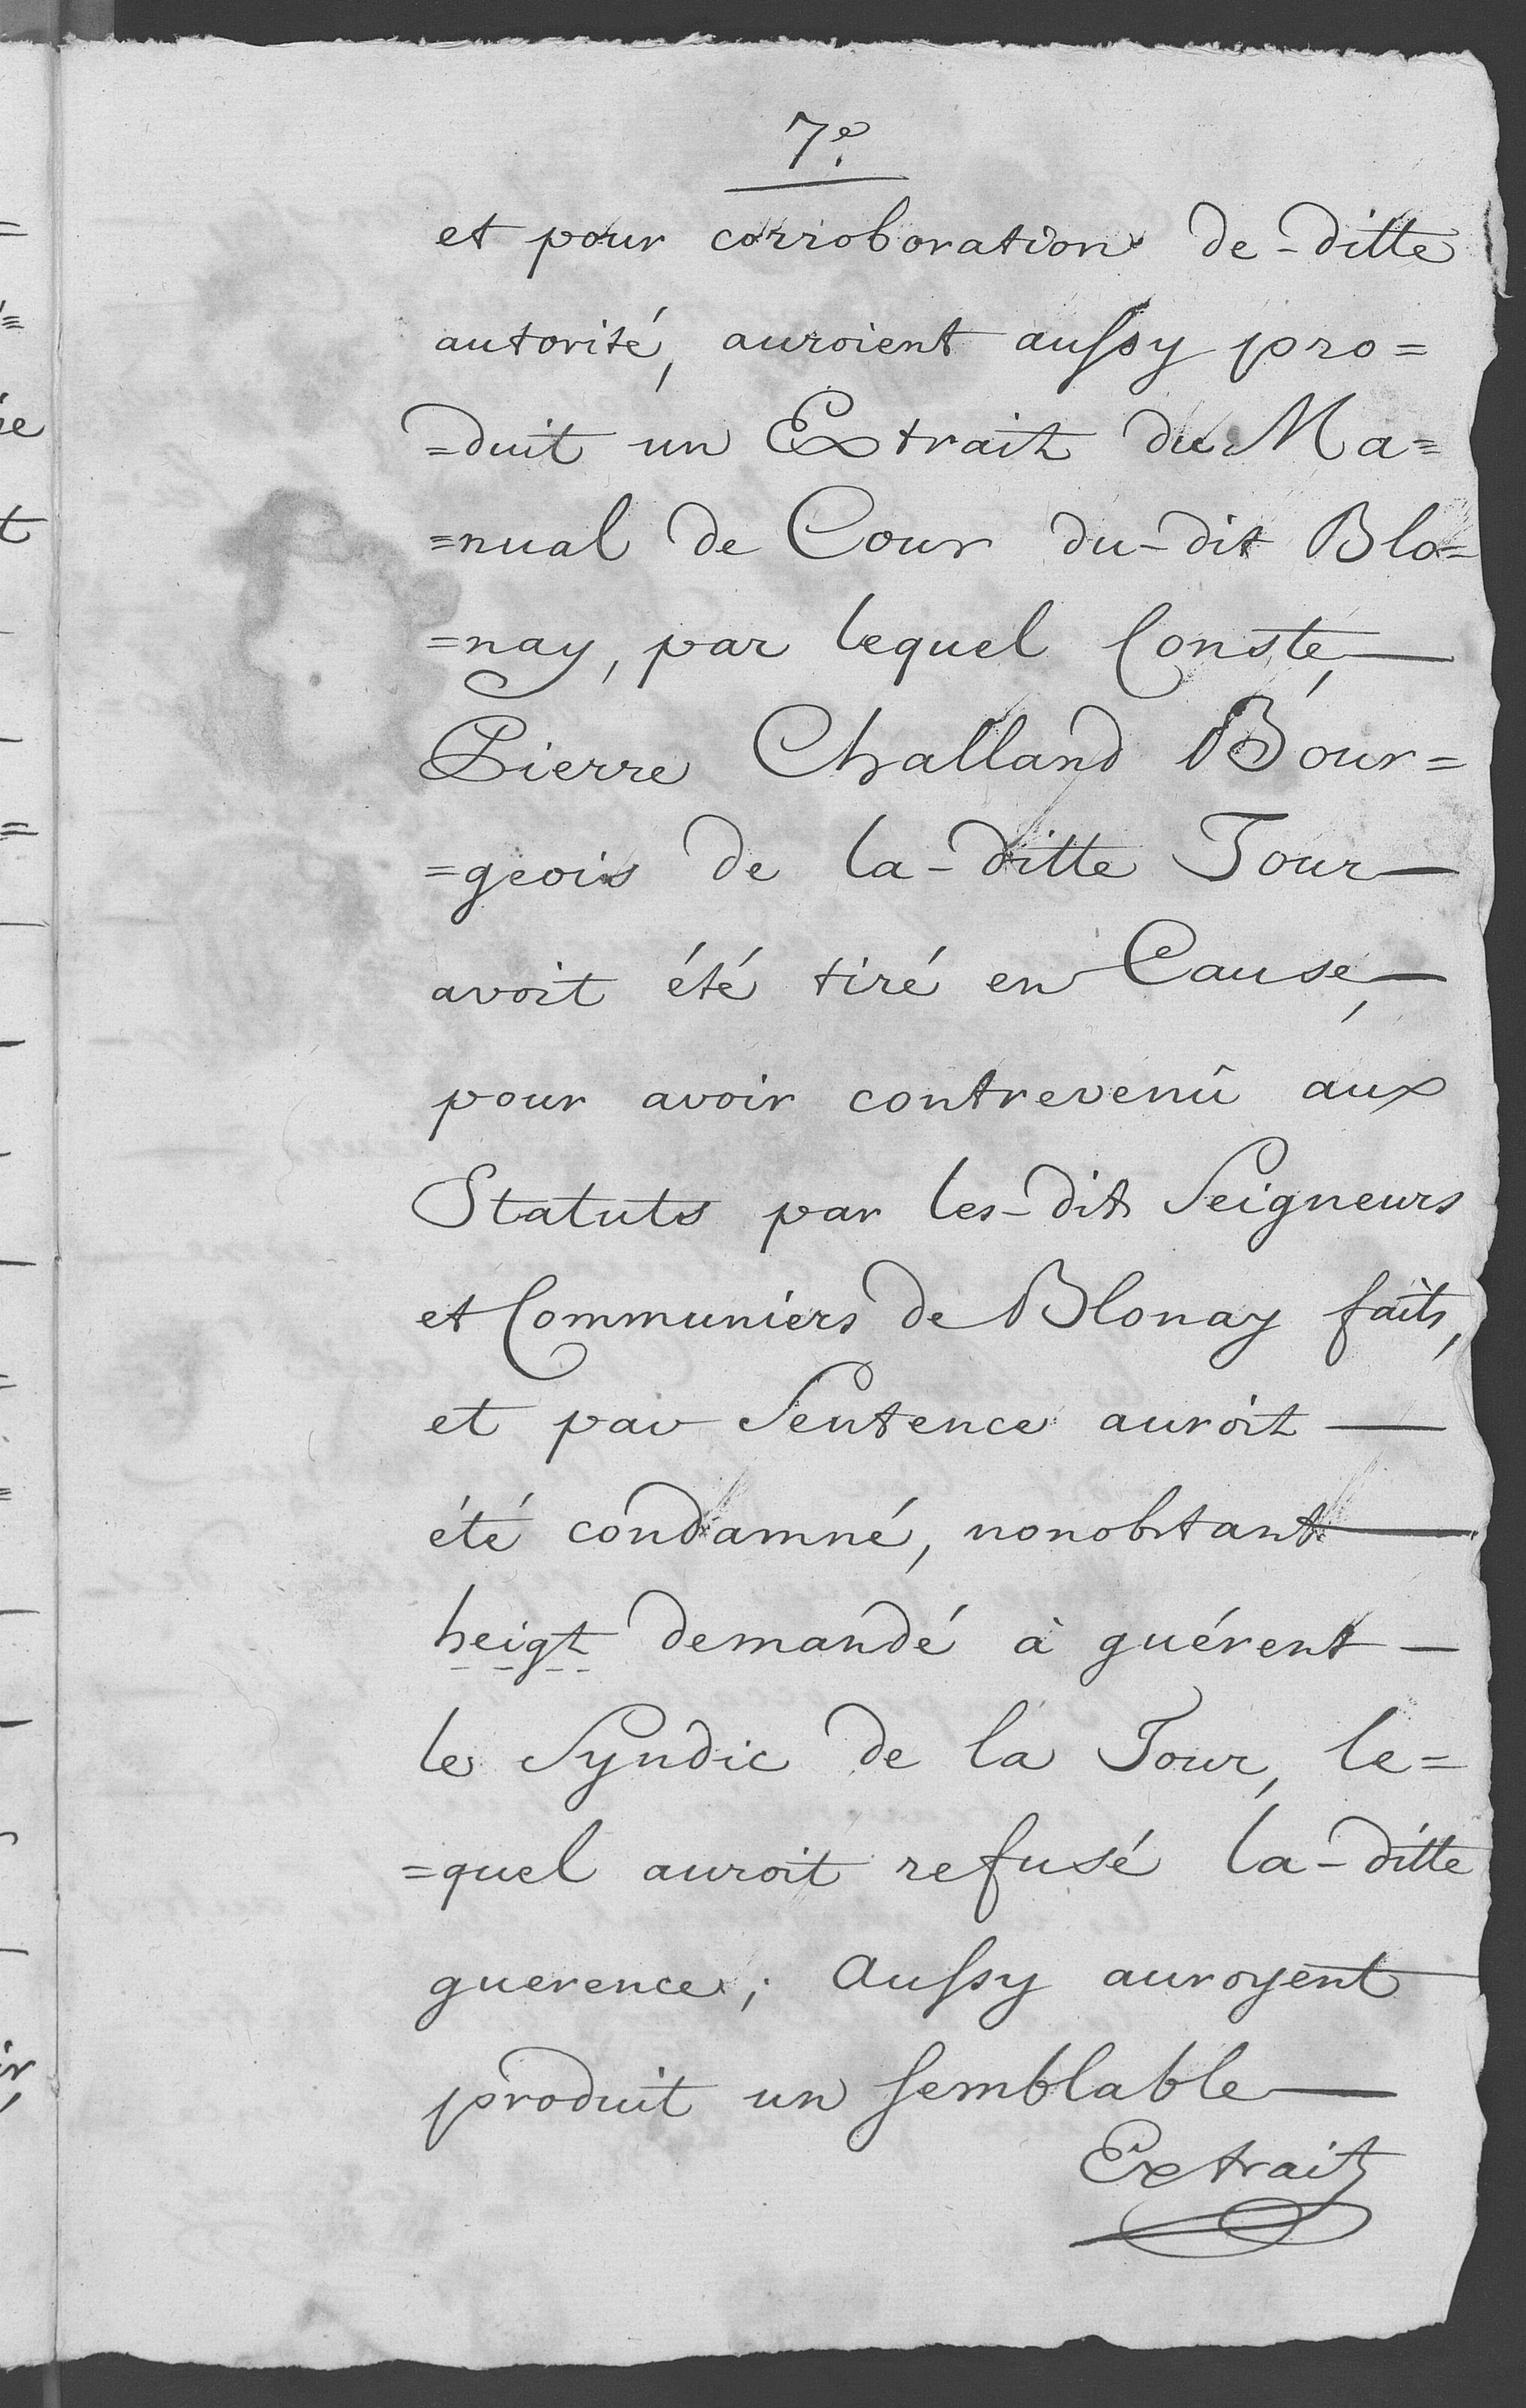 7e.
et pour corroboration de-ditte
autorité, auroient aussy pro=
=duit un Extrait du Ma=
=nual de Cour du-dit Blo=
=nay, par lequel Conste, —
Pierre Challand Bour=
=geois de la-ditte Tour —
avoit été tiré en Cause, —
pour avoir contrevenû aux
Statuts par les-dits Seigneurs
et Communiers de Blonay faits,
et par Sentence auroit —
été condamné, nonobstant —
heigt demandé à guérent —
le Syndic de la Tour, le=
=quel auroit refusé la-ditte
guerence; aussy auroyent
produit un semblable —
Extrait